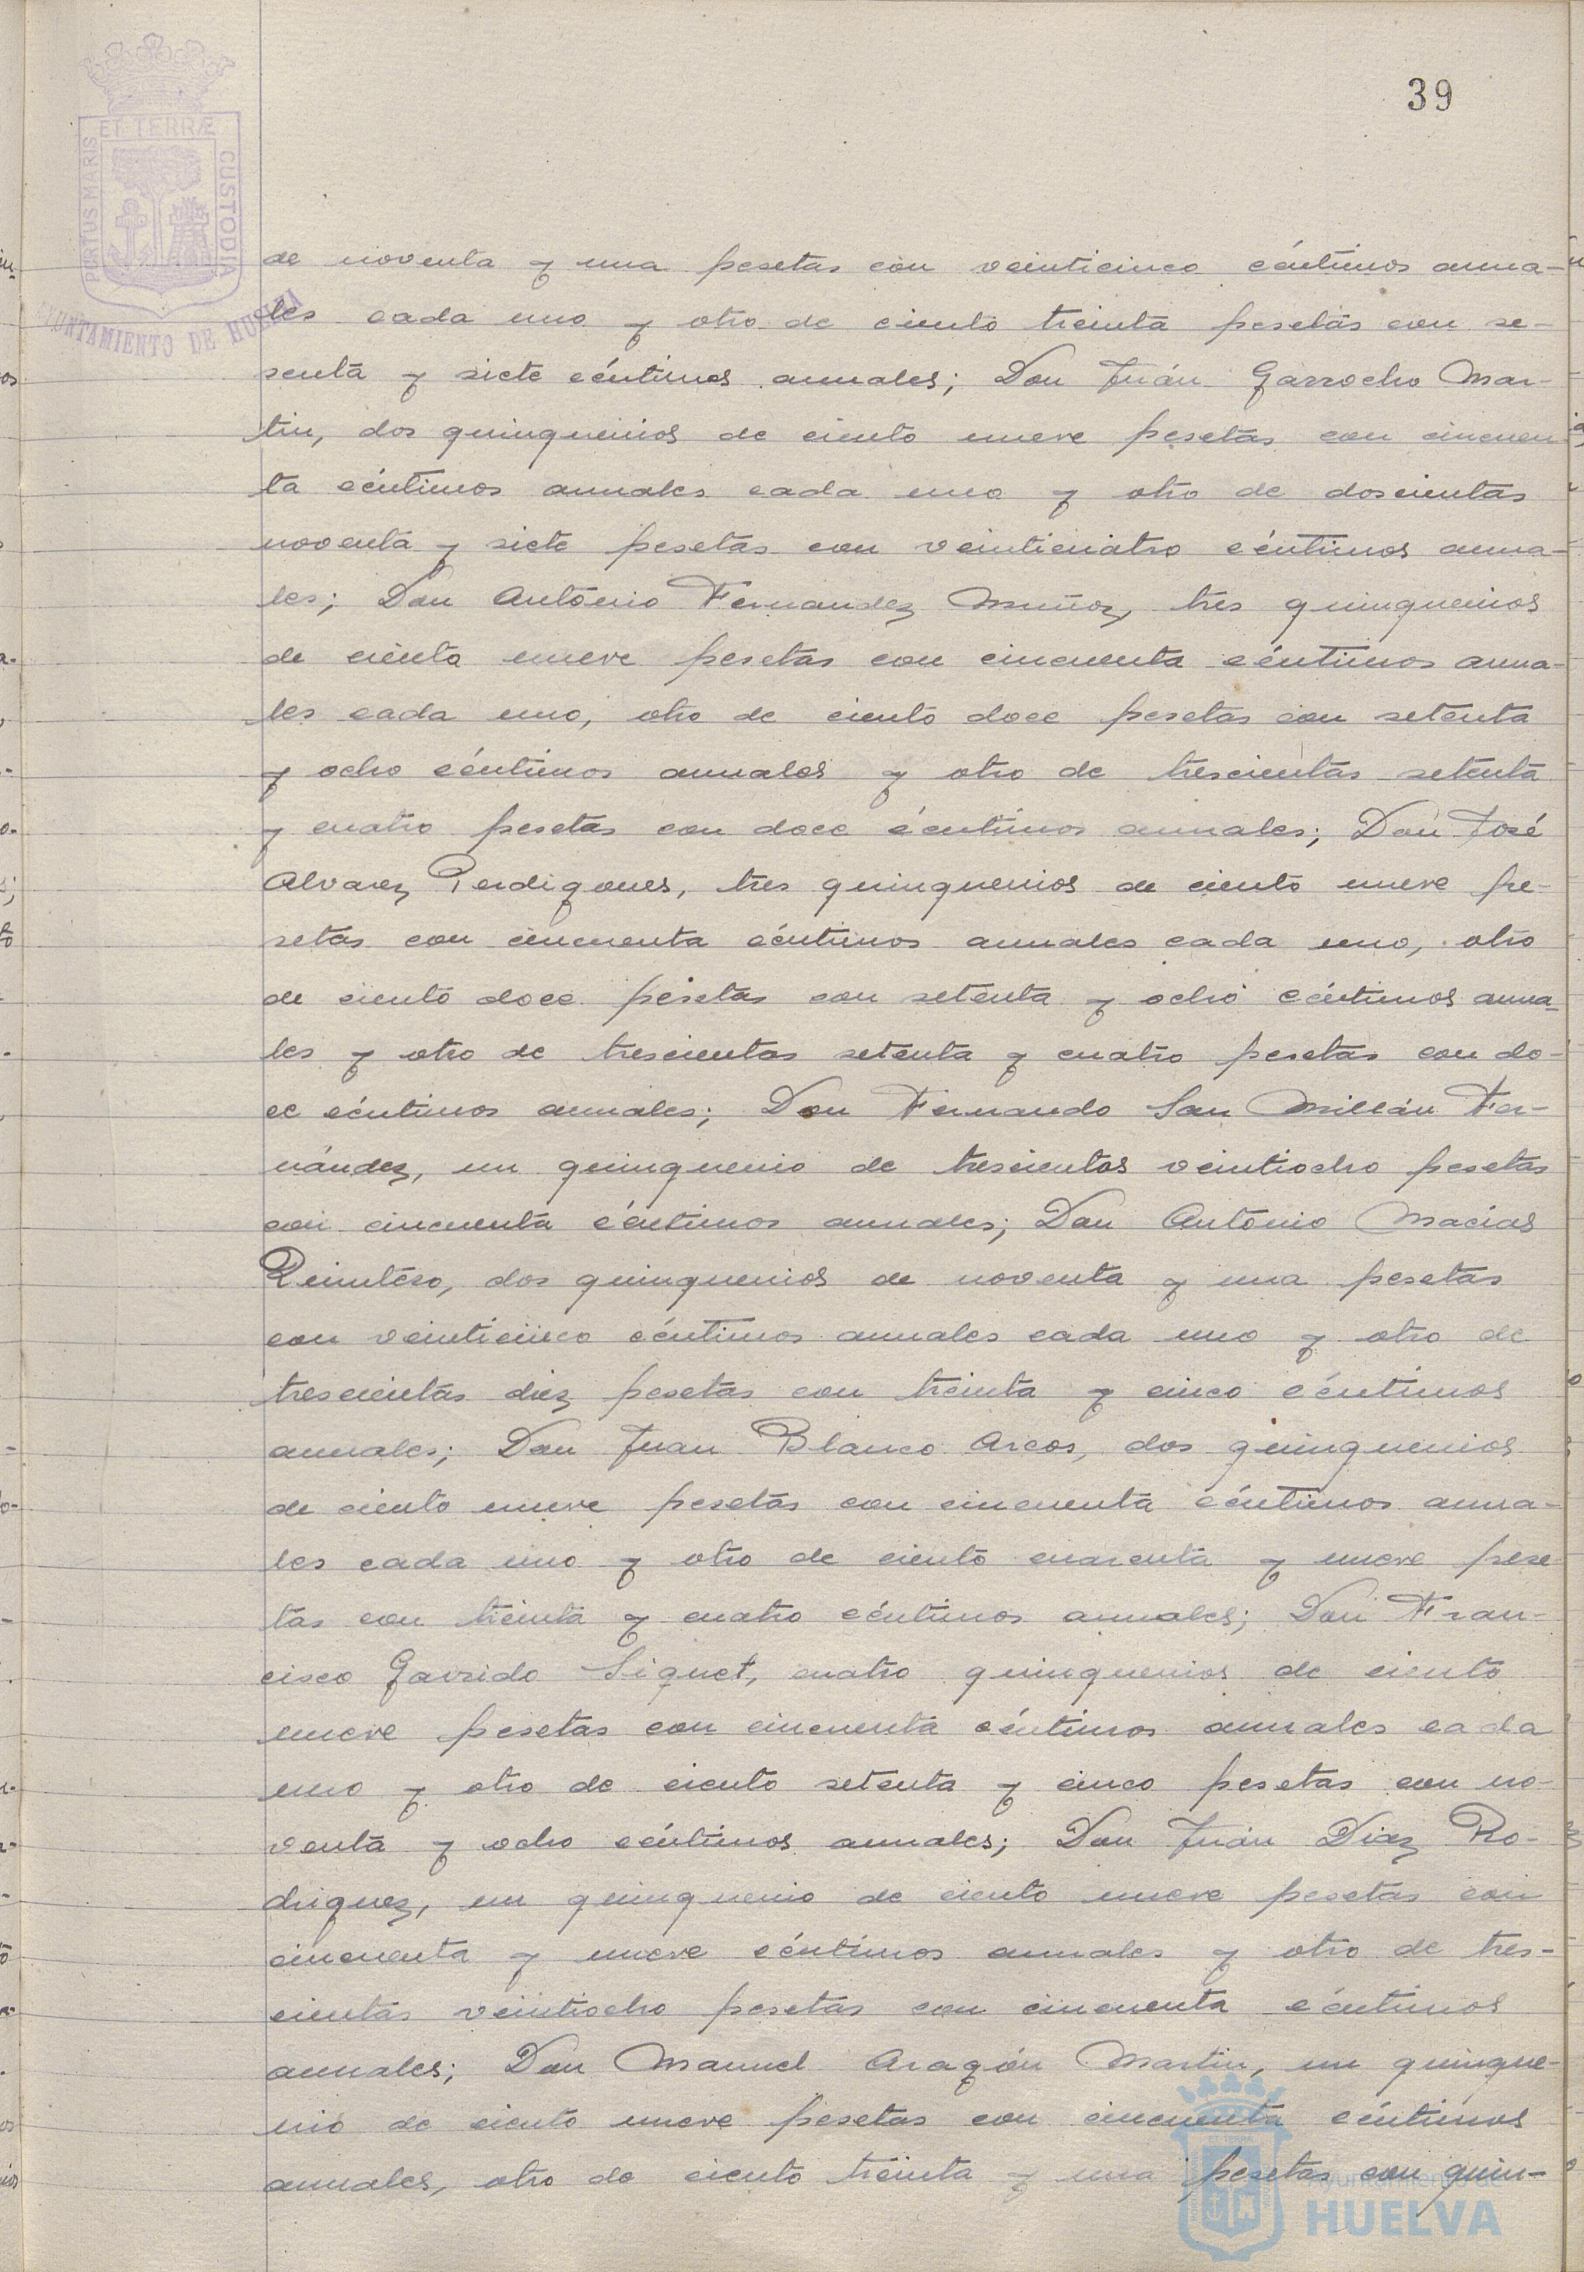 39
ET TERRÆ
PORTUS MARIS
CUSTODIA
AYUNTAMIENTO DE HUELVA
de noventa y una pesetas con veinticinco céntimos anua-
les cada uno y otro de ciento treinta pesetas con se-
senta y siete céntimos anuales; Don Juán Garrocho Mar-
tin, dos quinquenios de ciento nueve pesetas con cincuen
ta céntimos anuales cada uno y otro de doscientas
noventa y siete pesetas con veinticuatro céntimos anua-
les; Don Antonio Fernandez Muñoz, tres quinquenios
de ciento nueve pesetas con cincuenta céntimos anua-
les cada uno, otro de ciento doce pesetas con setenta
y ocho céntimos anuales y otro de trescientas setenta
y cuatro pesetas con doce céntimos anuales; Don José
Alvarez Perdigones, tres quinquenios de ciento nueve pe-
setas con cincuenta céntimos anuales cada uno, otro
de ciento doce pesetas con setenta y ocho céntimos anua-
les y otro de trescientas setenta y cuatro pesetas con do-
ce céntimos anuales; Don Fernando San Millán Fer-
nández, un quinquenio de trescientos veintiocho pesetas
con cincuenta céntimos anuales; Don Antonio Macías
dos quinquenios de noventa y una pesetas
con veinticinco céntimos anuales cada uno y otro de
trescientas diez pesetas con treinta y cinco céntimos
anuales; Don Juan Blanco Arcos, dos quinquenios
de ciento nueve pesetas con cincuenta céntimos anua-
les cada uno y otro de ciento cuarenta y nueve pese
tas con treinta y cuatro céntimos anuales; Don Fran-
cisco Garrido Siquet, cuatro quinquenios de ciento
nueve pesetas con cincuenta céntimos anuales cada
uno y otro de ciento setenta y cinco pesetas con no-
venta y ocho céntimos anuales; Don Juán Diaz Ro-
driguez, un quinquenio de ciento nueve pesetas con
cincuenta y nueve céntimos anuales y otro de tres-
cientas veintiocho pesetas con cincuenta céntimos
anuales; Don Manuel Aragón Martin, un quinque-
nio de ciento nueve pesetas con cincuenta céntimos
anuales, otro de ciento treinta y una pesetas con quin-
Ayuntamiento de
HUELVA